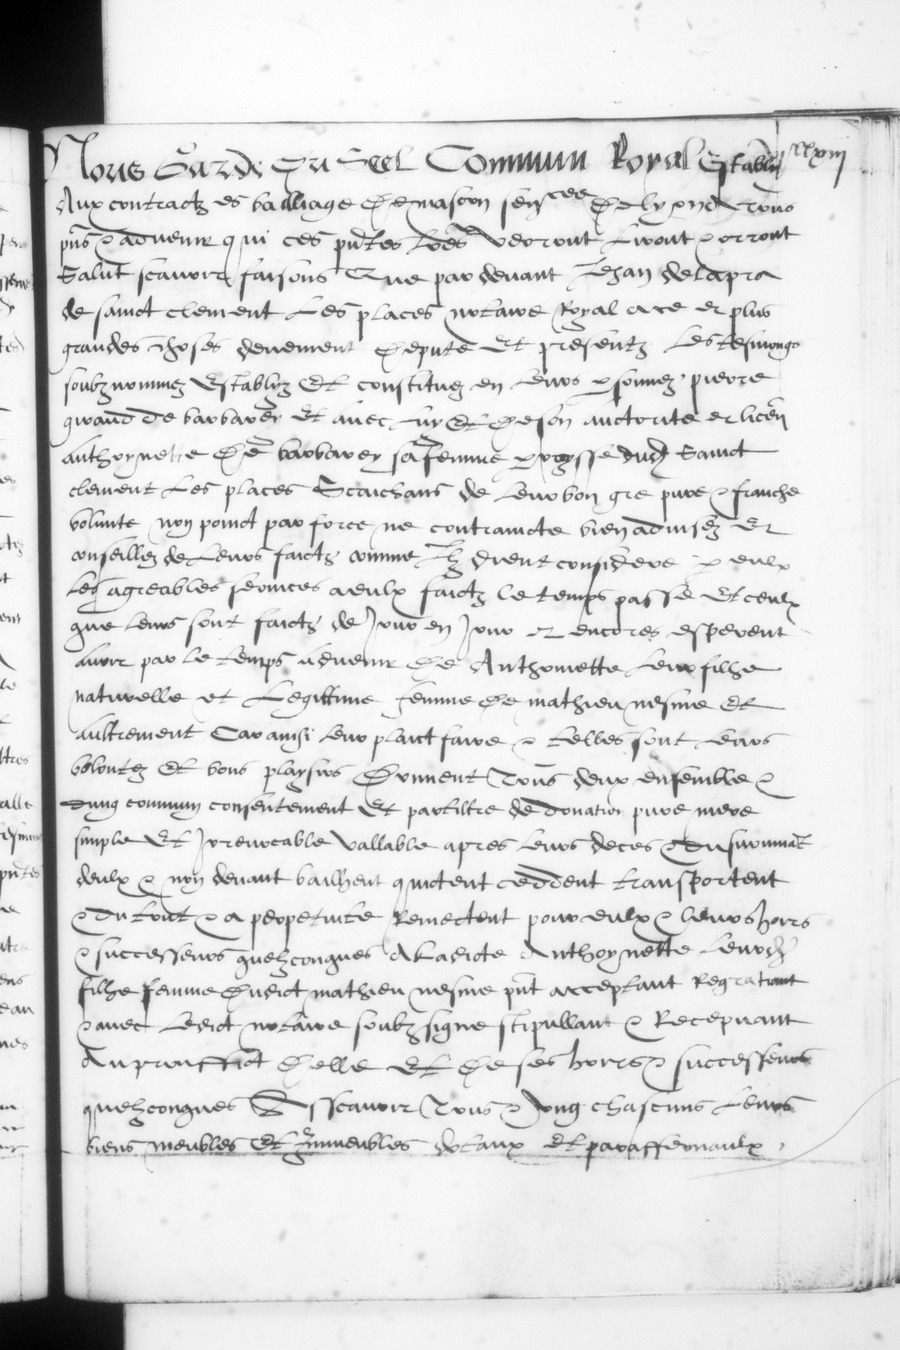 Nous Garde du Seel Commun Royal Estably xxxiii
Aux contractz es bailliage de mascon a tous
pns & advenir qui ces pntes lres verront liront & orront
Salut scavoir faisons Que par devant Jehan delapra
de sainct clement Les places notaire Royal a ce et plus
grandes choses deuement depute Et presentz Les tesmongs
soubznommez Establyz Et constituez en leurs psonnes pierre
giraud de barbarey Et avec luy Et de son auctorite et licen
Anthoynette de barbarey sa femme dud Sainct
clement Les places Scaichans de Leur bon gre pure & franche
volunte non poinct par force ne contraincte bien advisez Et
conseillez de Leurs faictz comme Ilz dient considere p eulx
Les agreables services a eulx faictz le temps passe Et ceulx
que leurs sont faictz de jour en jour et encores esperent
avoir par le temps advenir de Anthoinette leur filhe
naturelle et Legittime femme de mathieu mesme Et
Aultrement Car ainsi leur plaict faire & telles sont leurs
voluntez Et bons playsirs Donnent Tous deux ensemble &
dung commun consentement Et par tiltre de donation pure mere
simple Et jrrevocable vallable apres leurs deces & du survivant
deulx & non devant bailhent quictent ceddent transportent
& du tout & a perpetuite Remectent pour eulx & leurs hoirs
& successeurs quelzcongues A ladicte Anthoynette leurd
filhe femme dudict mathieu mesme pnt acceptant Regratiant
& avec Ledict notaire soubzsigne stipullant & Recepvant
Au prouffict delle Et de ses hoirs & successeurs
quelzcongues Asscavoir Tous & ung chascuns Leurs
biens meubles Et Immeubles dotaux Et paraffernaulx